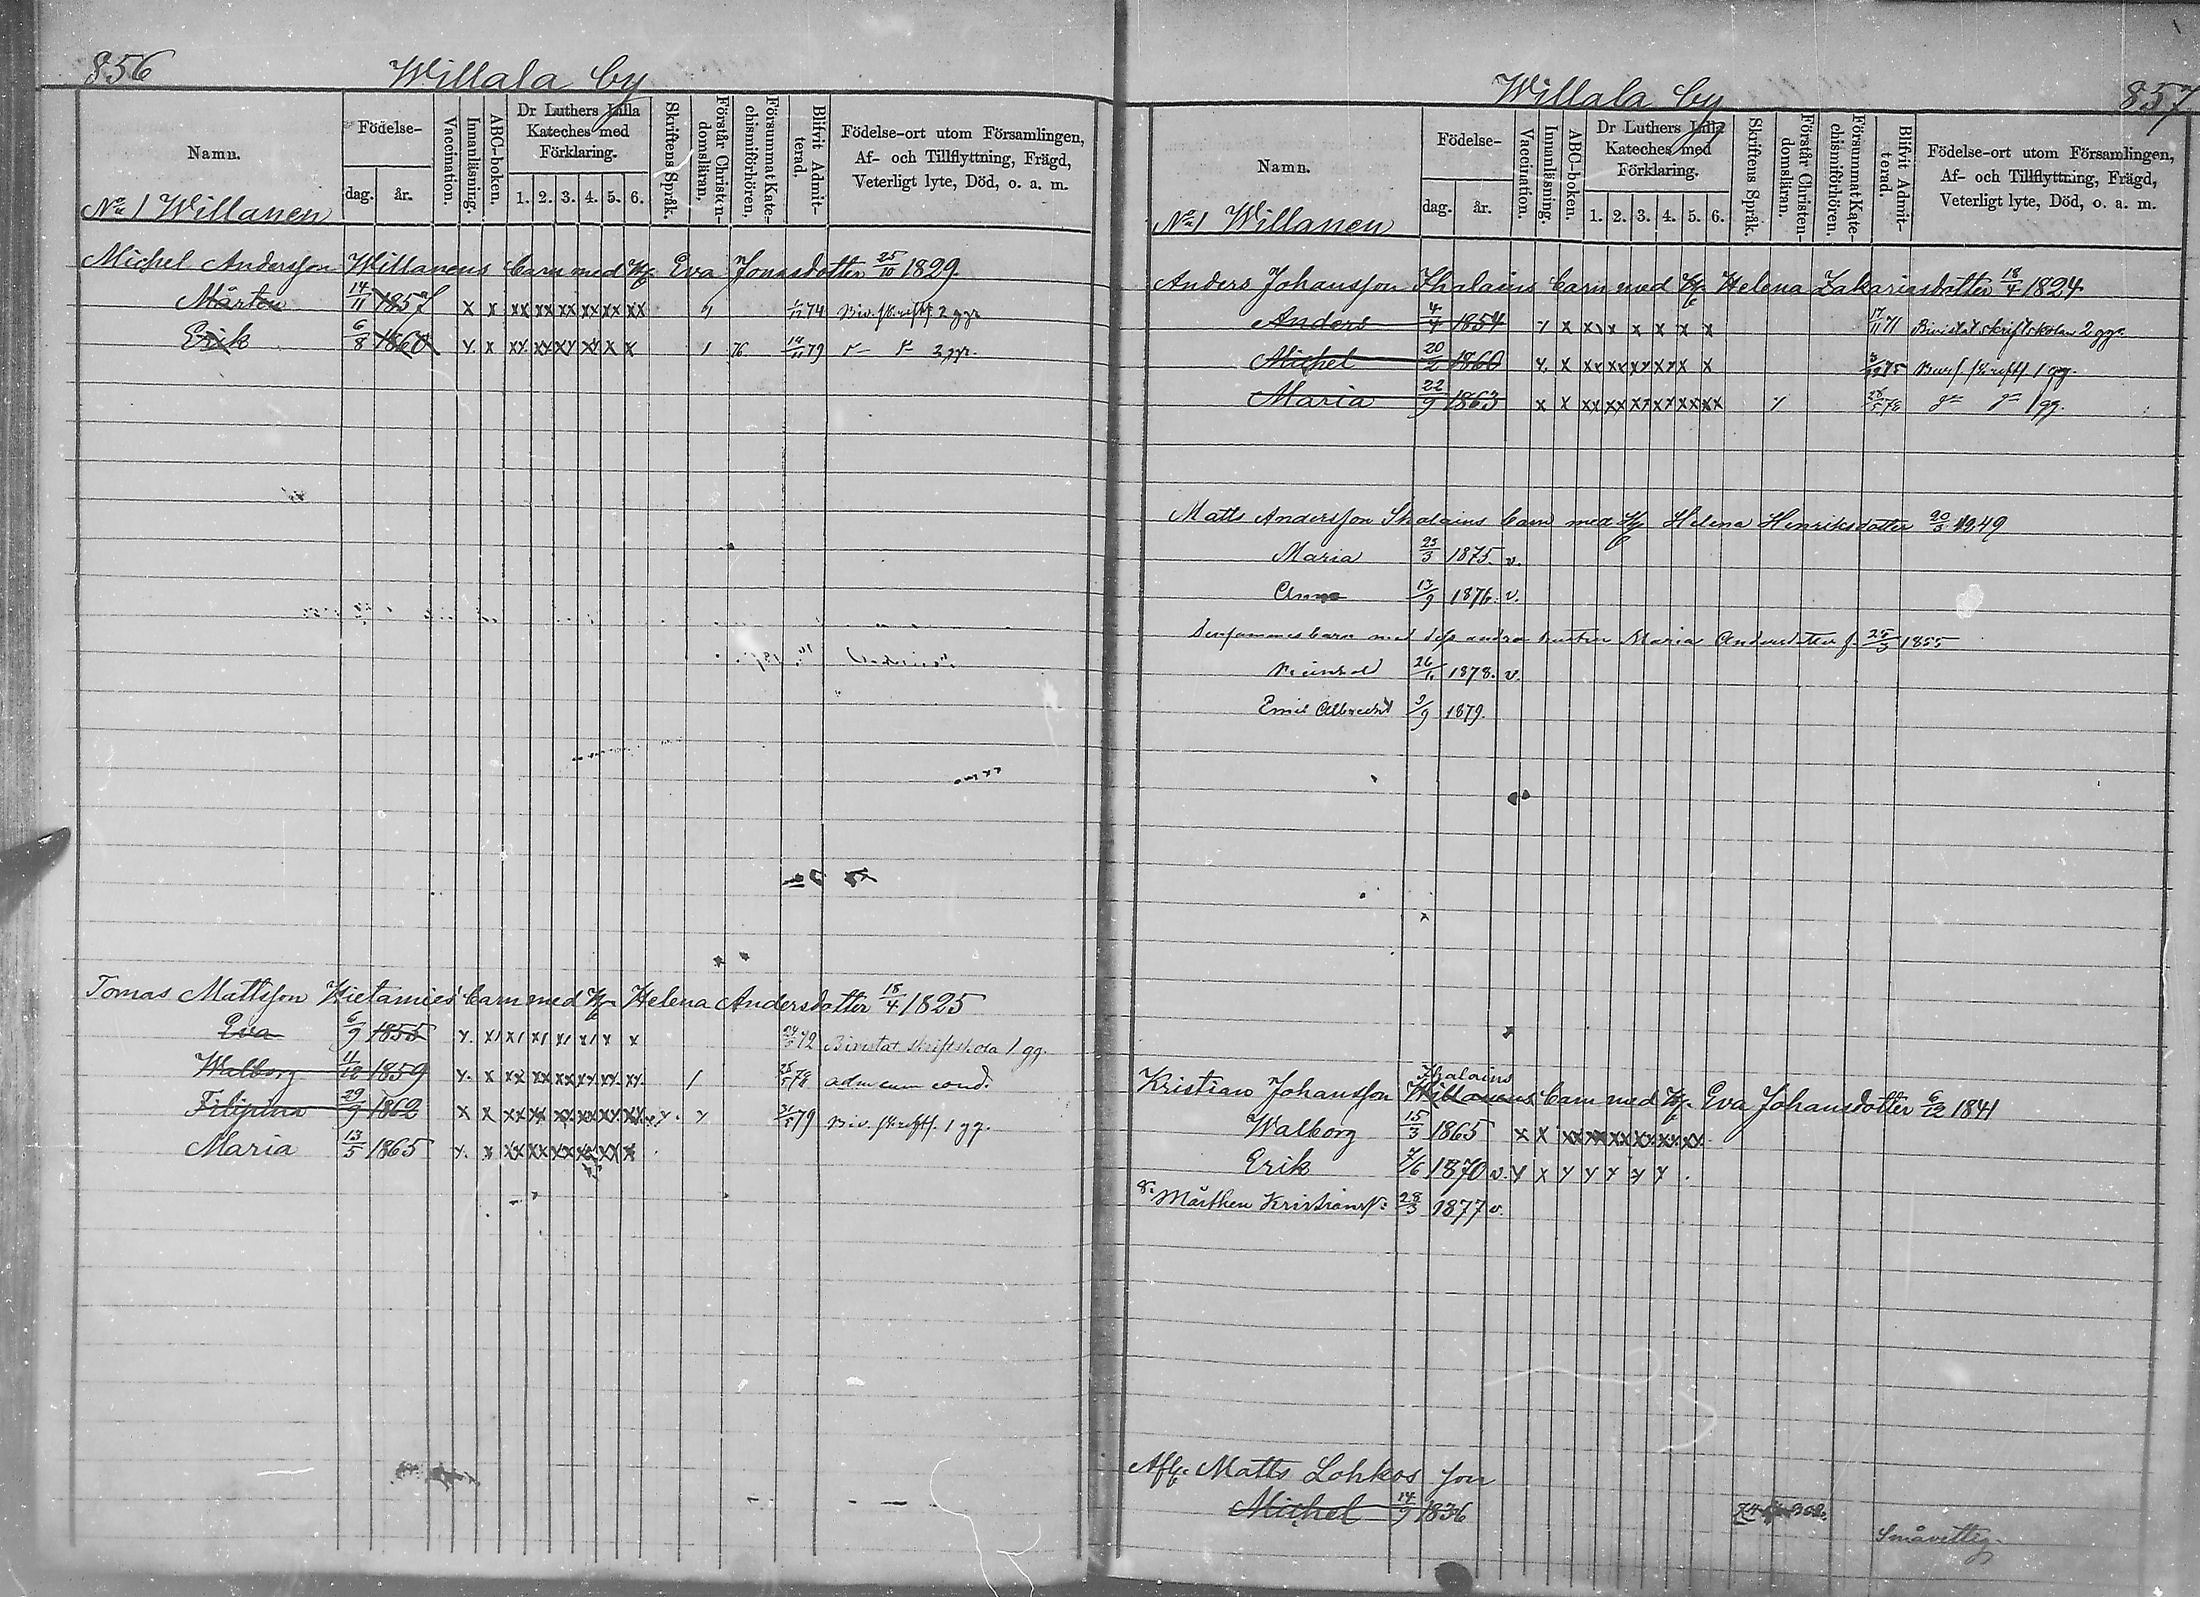 856
Willala by
Namn.
Födelse-
dag. år.
Vaccination.
Innanläsning.
ABC-boken.
Dr Luthers Lilla
Kateches med
Förklaring.
1. 2. 3. 4. 5. 6.
Skriftens Språk.
Förstår Christen-
domsläran,
Försummat Kate-
chismiförhören,
Blifvit Admit-
terad.
Födelse-ort utom Församlingen,
Af- och Tillflyttning, Frägd,
Veterligt lyte, Död, o. a. m.
No 1 Willanen
Michel Andersson Willanens barn med H. Eva Jonasdotter 25/10 1829.
Mårten 14/11 1857 x x xx xx xx xx xx xx 74 Biv. skriftsk. 2 ggr
Erik 6/8 1860 x. x xx xx xx xx x x 1 76 79 2 ggr.
Tomas Mattsson Hietamies' barn med H. Helena Andersdotter 18/4 1825
Eva 6/9 1855 72 Bivistat skriftskola 1 gg.
Walborg 11/12 1859 x. x xx xx xx xx xx xx. 1 25/5 78 adm cum cond.
Filipina 29/9 1862 x x 79 Biv. skriftsk. 1 gg.
Maria 13/5 1865 x. x
Willala by
857
Namn.
Födelse-
dag. år.
Vaccination.
Innanläsning.
ABC-boken.
Dr Luthers Lilla
Kateches med
Förklaring.
1. 2. 3. 4. 5. 6.
Skriftens Språk.
Förstår Christen-
domsläran.
Försummat Kate-
chismiförhören.
Blifvit Admit-
terad.
Födelse-ort utom Församlingen,
Af- och Tillflyttning, Frägd,
Veterligt lyte, Död, o. a. m.
No 1 Willanen
Anders Johansson Ihalains barn med H. Helena Zakariasdotter 18/4 1824
Anders 4/4 1854 x x x x x x x 17/11 71 Bivistat skriftskolan 2 ggr.
Michel 20/2 1860 x. x xx xx xx xx x x 75 1 gg.
Maria 22/9 1863 x x xx xx xx xx xx xx 78 1 gg.
Matts Andersson Ihalains barn med H. Helena Henriksdotter 20/3 1849
Maria 25/3 1875. v.
Anna 13/9 1876. v.
Densammes barn med dess andra hustru Maria Andersdotter f. 25/3 1855
Reinhold 26/ 1878. v.
Emil Albrecht 3/9 1879.
Ihalains
Kristian Johansson Willanens barn med H. Eva Johansdotter 6/12 1841
Walborg 15/3 1865 x x xx xx xx xx xx xx
Erik 7/6 1870 v. x x x x x x x
Mårthen Kristianss: 28/3 1877 v.
Afl. Matts Lohkos son
Michel 14/9 1836
Småvettig